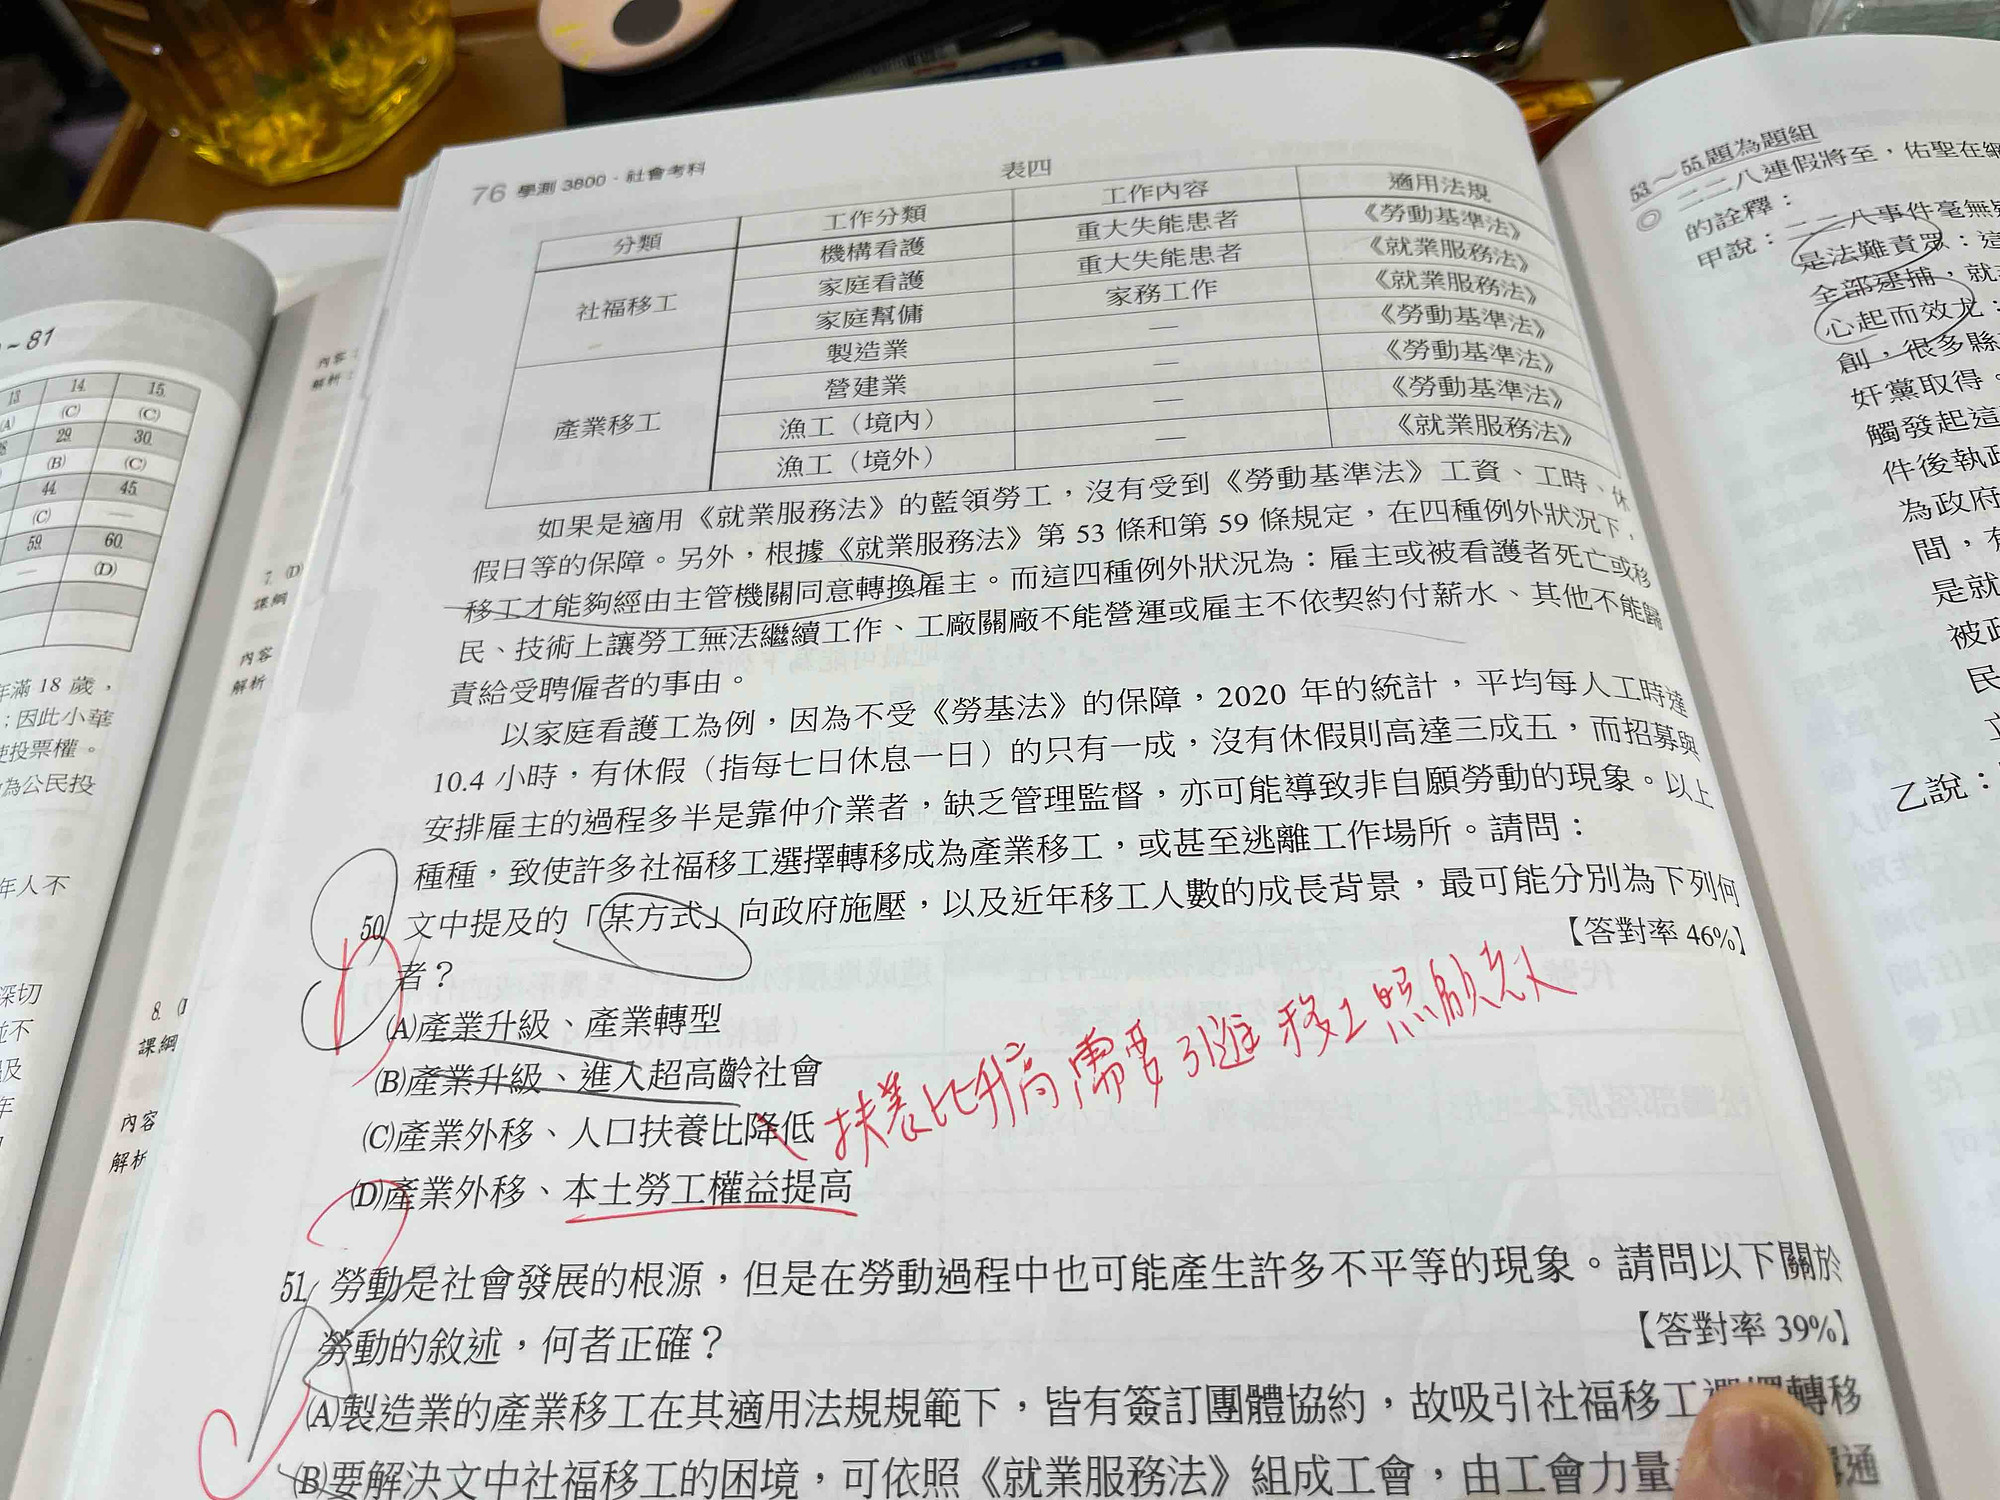 76 學測 3800．社會考科
表四
分類 工作分類 工作內容 適用法規
社福移工 機構看護 重大失能患者 《勞動基準法》
家庭看護 重大失能患者 《就業服務法》
家庭幫傭 家務工作 《就業服務法》
產業移工 製造業 — 《勞動基準法》
營建業 — 《勞動基準法》
漁工（境內） — 《勞動基準法》
漁工（境外） — 《就業服務法》
如果是適用《就業服務法》的藍領勞工，沒有受到《勞動基準法》工資、工時、休
假日等的保障。另外，根據《就業服務法》第 53 條和第 59 條規定，在四種例外狀況下，
移工才能夠經由主管機關同意轉換雇主。而這四種例外狀況為：雇主或被看護者死亡或移
民、技術上讓勞工無法繼續工作、工廠關廠不能營運或雇主不依契約付薪水、其他不能歸
責給受聘僱者的事由。
以家庭看護工為例，因為不受《勞基法》的保障，2020 年的統計，平均每人工時達
10.4 小時，有休假（指每七日休息一日）的只有一成，沒有休假則高達三成五，而招募與
安排雇主的過程多半是靠仲介業者，缺乏管理監督，亦可能導致非自願勞動的現象。以上
種種，致使許多社福移工選擇轉移成為產業移工，或甚至逃離工作場所。請問：
50. 文中提及的「某方式」向政府施壓，以及近年移工人數的成長背景，最可能分別為下列何
者？ 【答對率 46%】
(A)產業升級、產業轉型
(B)產業升級、進入超高齡社會
(C)產業外移、人口扶養比降低
扶養比升高需要引進移工照顧老人
(D)產業外移、本土勞工權益提高
51. 勞動是社會發展的根源，但是在勞動過程中也可能產生許多不平等的現象。請問以下關於
勞動的敘述，何者正確？ 【答對率 39%】
(A)製造業的產業移工在其適用法規規範下，皆有簽訂團體協約，故吸引社福移工 轉移
(B)要解決文中社福移工的困境，可依照《就業服務法》組成工會，由工會力量
53.～55.題為題組
◎ 二二八連假將至，佑聖在網
的詮釋：
甲說：二二八事件毫無疑
是法難責眾：這
全部逮捕，就
心起而效尤：
創，很多縣
奸黨取得。
觸發起這
件後執政
為政府
間，有
是就
被政
民
乙說：
~ 81
13. 14. 15.
(A) (C) (C)
29. 30.
(B) (C)
44. 45.
(C) —
59. 60.
— (D)
年滿 18 歲，
；因此小華
使投票權。
為公民投
年人不
深切
並不
及
年
內容：
解析：
7. (D)
課綱
內容
解析
8.
課綱
內容
解析